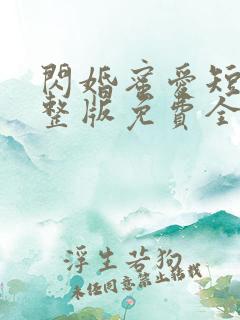 閃婚蜜愛短
整版免費全
浮生若狗
未經同意禁止轉載